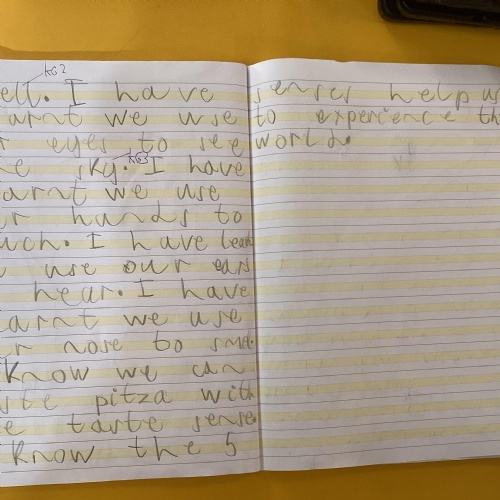 KG2
ell. I have
arnt we use
r eyes to see
he sky. I have
KG3
arnt we use
ur hands to
uch. I have learnt
use our ears
hear. I have
arnt we use
ur nose to smell.
Know we can
ste pitza with
e taste sense.
Know the 5
senses help us
to experience the
world.